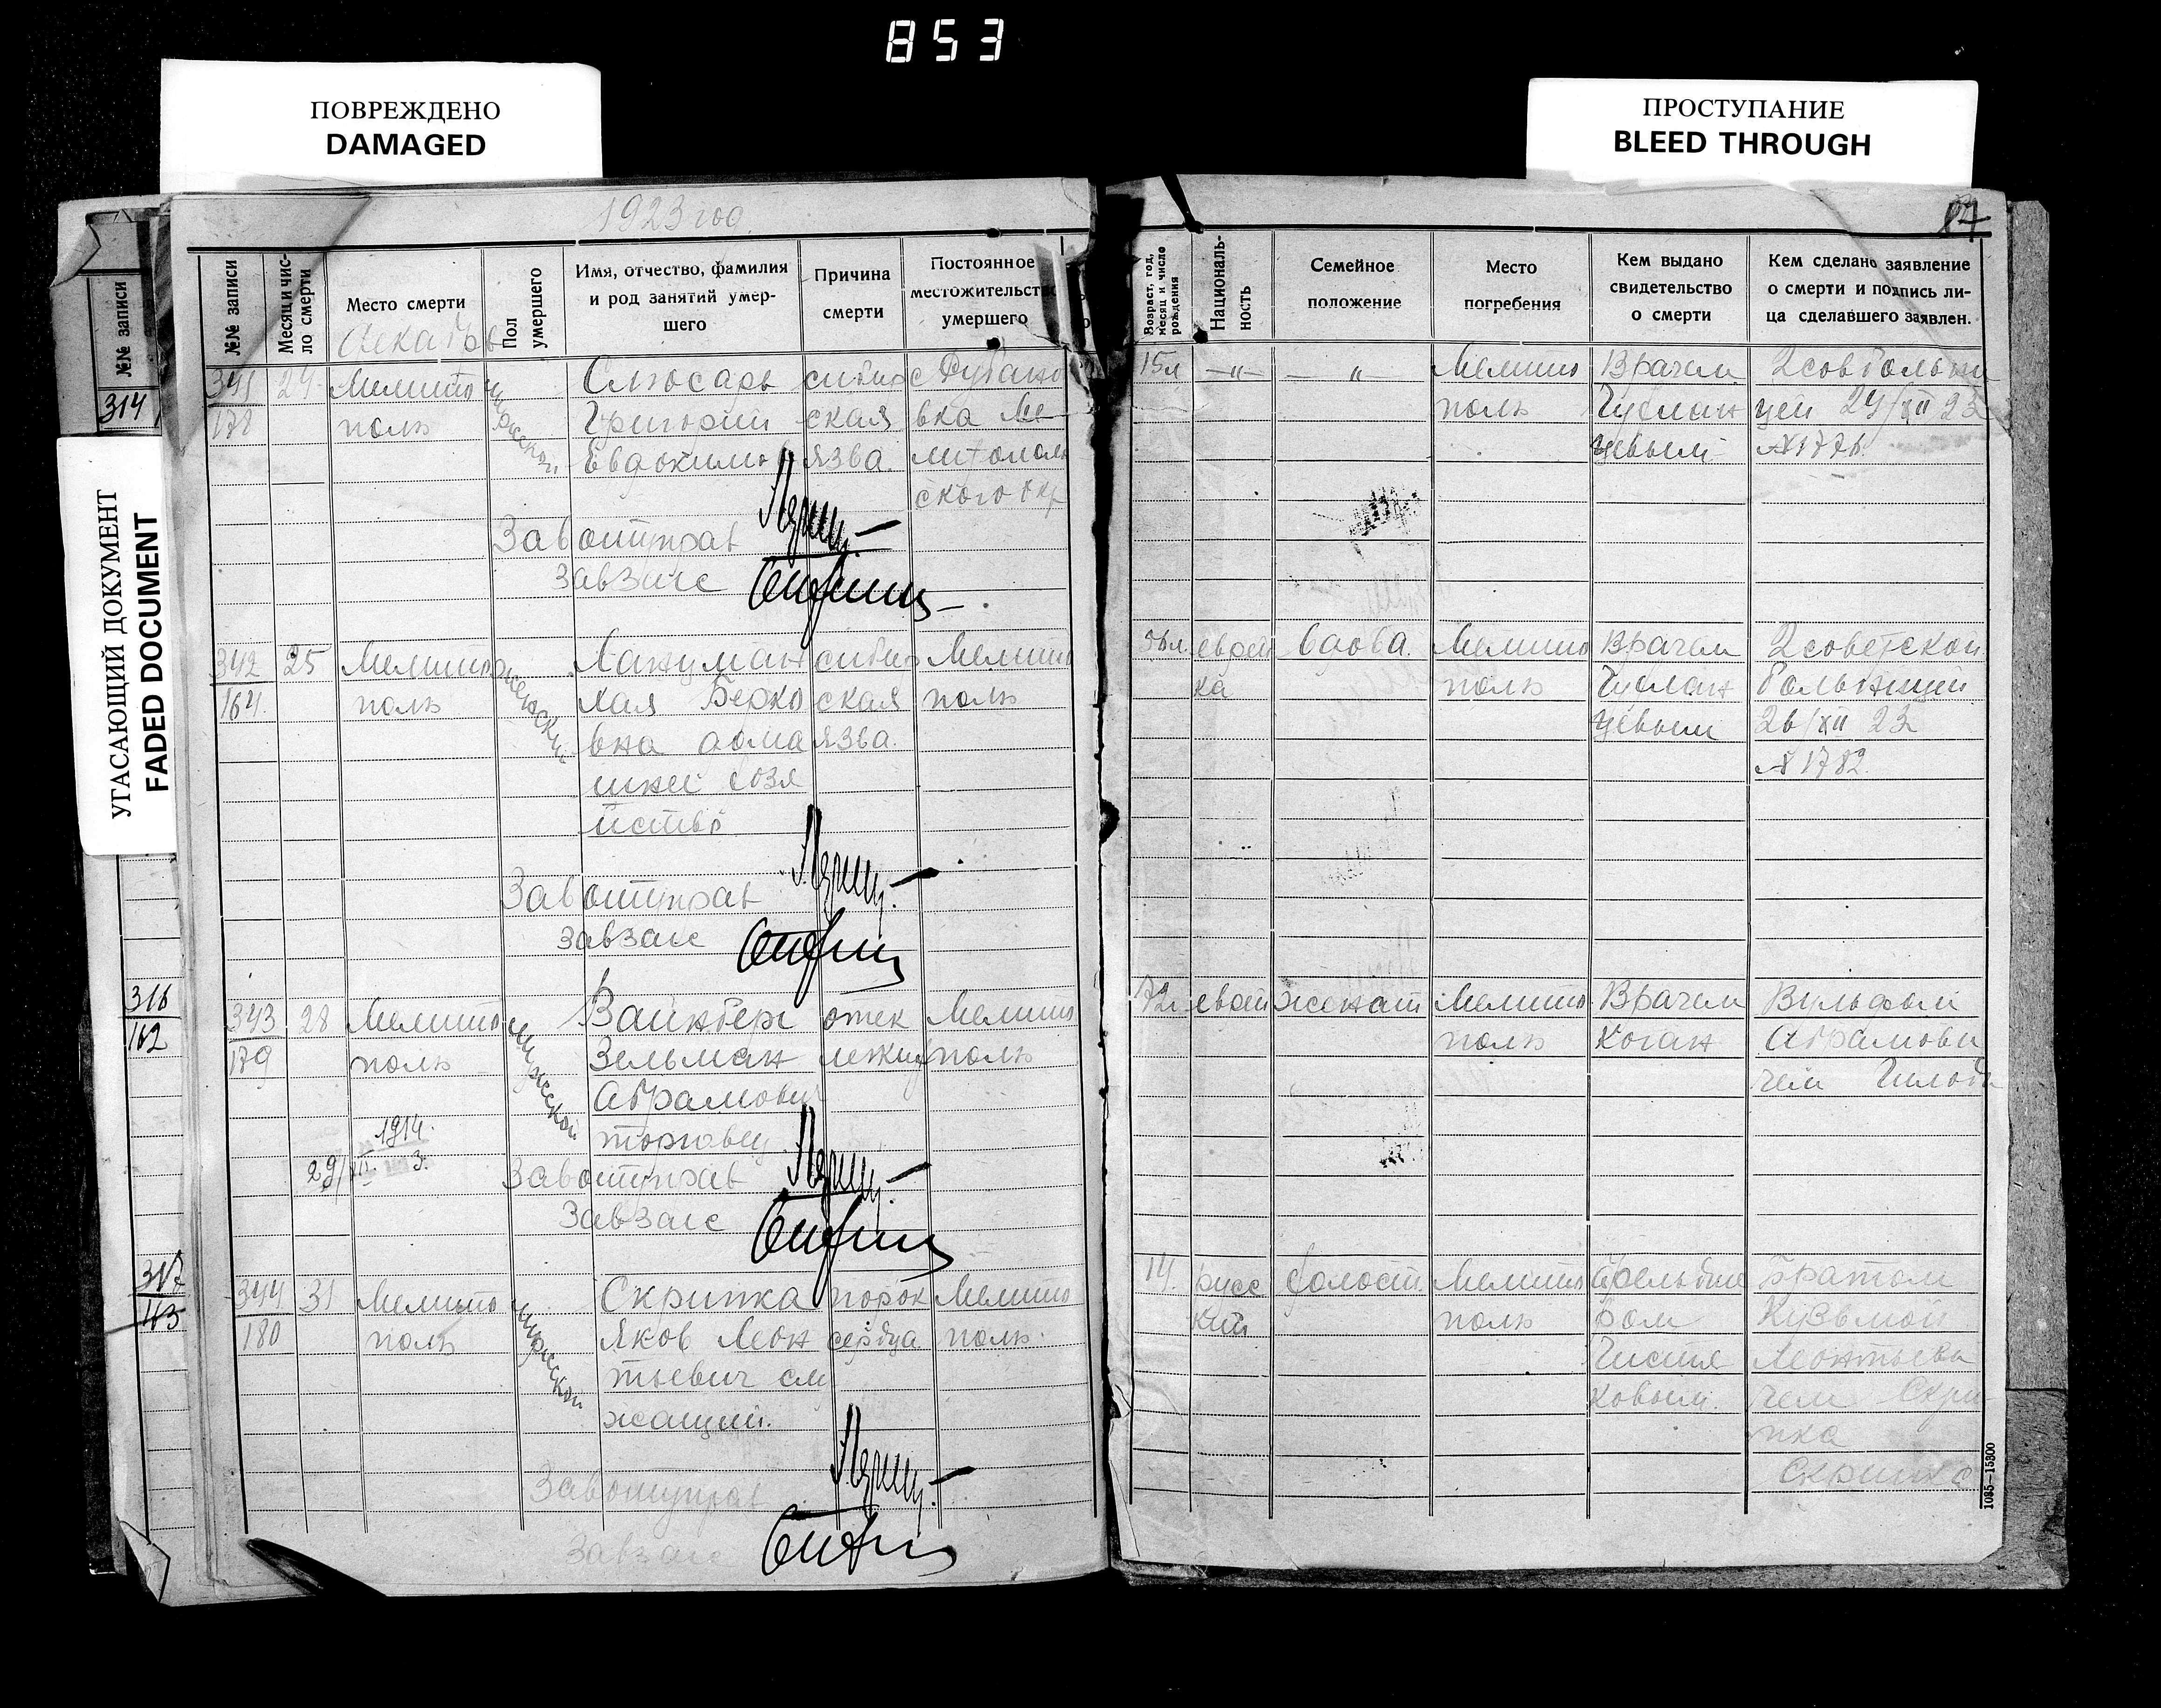 853
ПОВРЕЖДЕНО
DAMAGED
ПРОСТУПАНИЕ
BLEED THROUGH
УГАСАЮЩИЙ ДОКУМЕНТ
FADED DOCUMENT
1923 год.
87
№№ записи
314
316
162
317
163
№№ записи
Месяц и чис-
ло смерти
Место смерти
Декабрь
Пол
умершего
Имя, отчество, фамилия
и род занятий умер-
шего
Причина
смерти
Постоянное
местожительство
умершего
Возраст, год,
месяц и число
рождения
Националь-
ность
Семейное
положение
Место
погребения
Кем выдано
свидетельство
о смерти
Кем сделано заявление
о смерти и подпись ли-
ца сделавшего заявлен.
341
178
Мелито
поль
мужской
Слюсарь
Григорий
Евдокимов
сибир
ская
язва
вка Ме
литополь
ского окр
15л
—"—
—"—
Мелито
поль
Врачем
2 сов больни
цей 24/XII 23
№1776
Завотуправ
Завзагс
342
164
25
Мелито
поль
женский
Хая Берко
вна дома
шнее хозя
йство
сибир
ская
язва
Мелито
поль
еврей
ка
вдова.
Мелито
поль
Врачем
2 советской
больницей
26/XII 23
№1782
Завотуправ
Завзагс
343
179
28
Мелито
поль
мужской
Вайнберг
Зельман
Абрамович
торговец
отек
легких
Мелито
поль
72л
еврей
женат
Мелито
поль
Врачем
Коган
Вульфом
Абрамови
чем
1914.
29/XII 3.
Завотуправ
Завзагс
344
180
31
Мелито
поль
мужской
Скрипка
Яков Леон
тьевич слу
жащий.
порок
сердца
Мелито
поль.
14.
русс
кий
холост.
Мелито
поль
Фельдше
ром
Чистя
ковым.
братом
Кузьмой
Леонтьеви
чем Скри
пка
Завотуправ
Завзагс
1085—15300